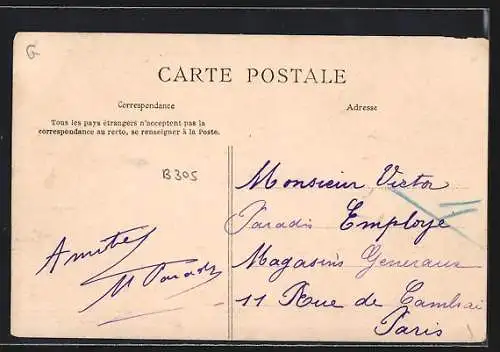 G
CARTE POSTALE
Correspondance
Tous les pays étrangers n'acceptent pas la
correspondance au recto, se renseigner à la Poste.
B305
Amitiés
M Paradis
Adresse
Monsieur Victor
Paradis Employé
Magasins Generaux
11 Rue de Cambrai
Paris